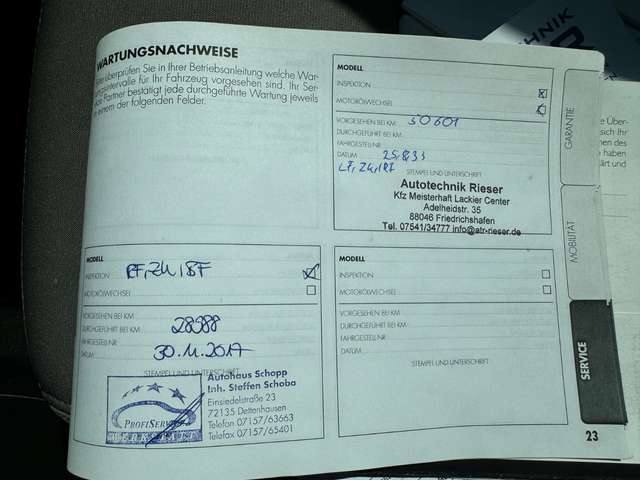 WARTUNGSNACHWEISE
überprüfen Sie in Ihrer Betriebsanleitung welche War-
intervalle für Ihr Fahrzeug vorgesehen sind. Ihr Ser-
Partner bestätigt jede durchgeführte Wartung jeweils
in einem der folgenden Felder.
MODELL
INSPEKTION
MOTORÖLWECHSEL
VORGESEHEN BEI KM 50601
DURCHGEFÜHRT BEI KM
FAHRGESTELLNR.
DATUM
STEMPEL UND UNTERSCHRIFT
Autotechnik Rieser
Kfz Meisterhaft Lackier Center
Adelheidstr. 35
88046 Friedrichshafen
Tel. 07541/34777 info@atr-rieser.de
MODELL
INSPEKTION
MOTORÖLWECHSEL
VORGESEHEN BEI KM
DURCHGEFÜHRT BEI KM 28988
FAHRGESTELLNR.
DATUM 30.11.2017
STEMPEL UND UNTERSCHRIFT
PROFISERVICE
WERKSTATT
Autohaus Schopp
Inh. Steffen Schoba
Einsiedelstraße 23
72135 Dettenhausen
Telefon 07157/63663
Telefax 07157/65401
MODELL
INSPEKTION
MOTORÖLWECHSEL
VORGESEHEN BEI KM
DURCHGEFÜHRT BEI KM
FAHRGESTELLNR.
DATUM
STEMPEL UND UNTERSCHRIFT
GARANTIE
MOBILITÄT
SERVICE
23